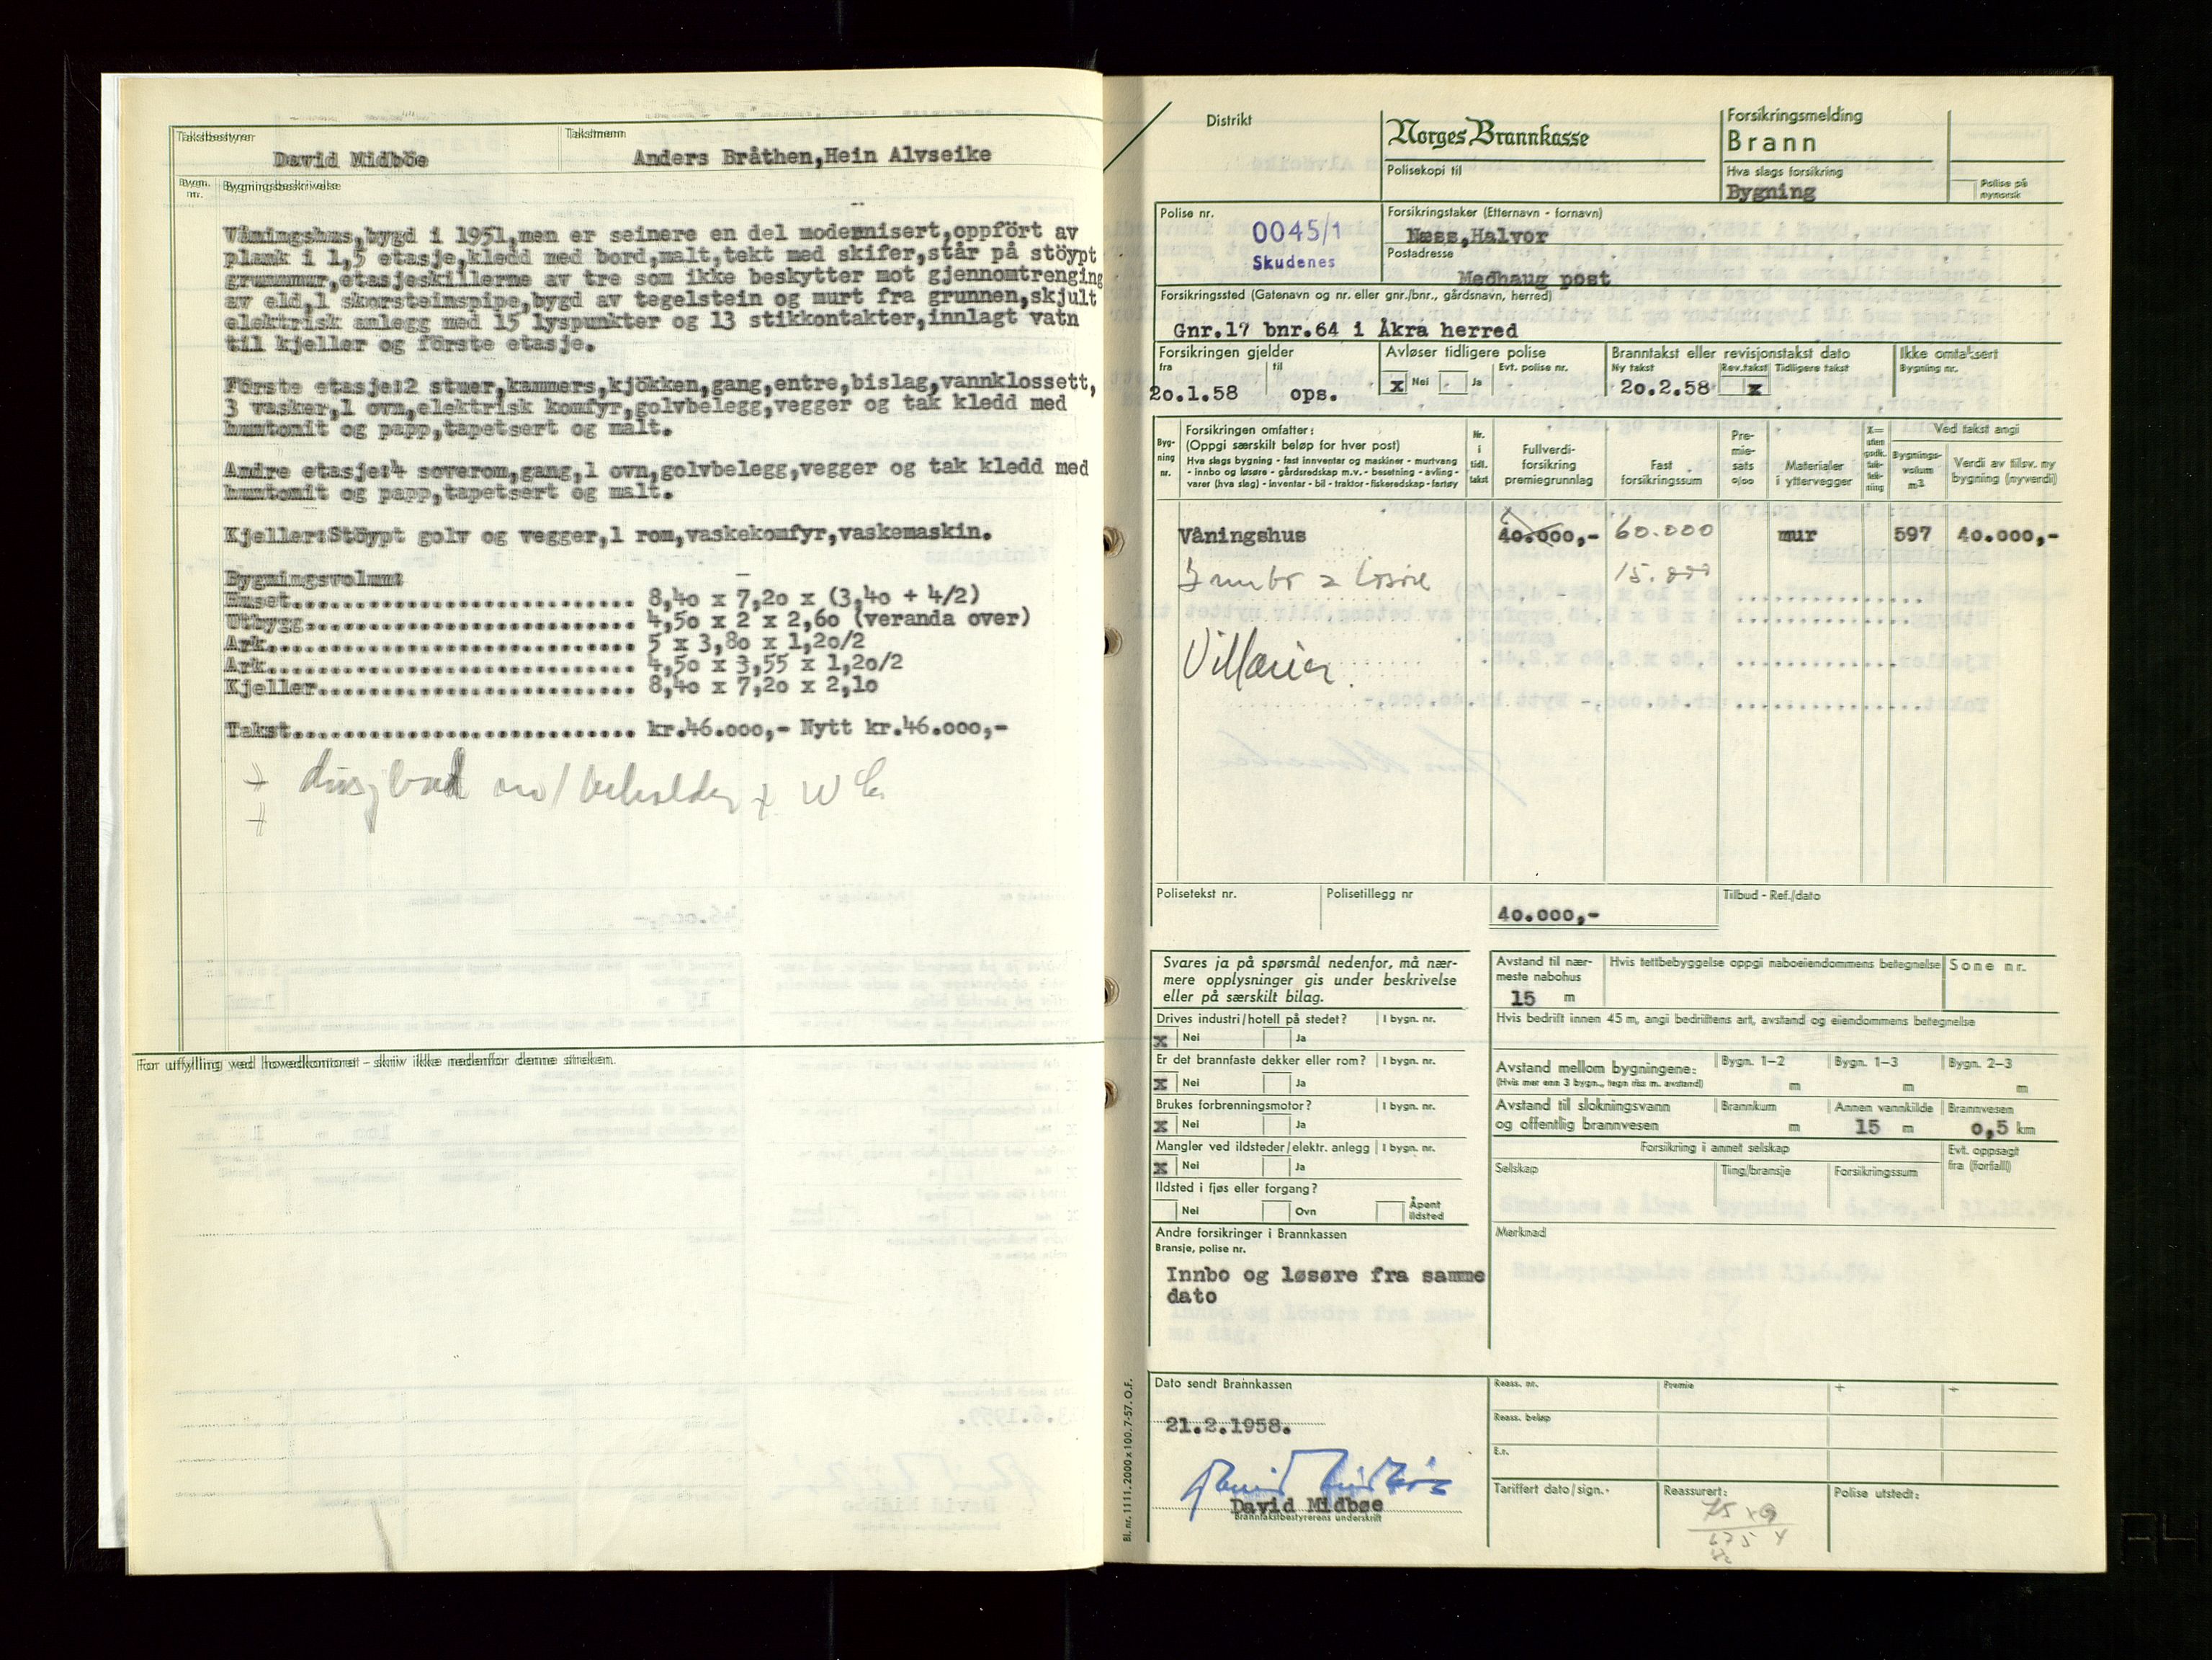 Takstbestyrer
Takstmann
David Midböe
Anders Bråthen,Hein Alvseike
Bygn. nr.
Bygningsbeskrivelse
Våningshus,bygd i 1951,men er seinere en del modernisert,oppfört av
plank i 1,5 etasje,kledd med bord,malt,tekt med skifer,står på stöypt
grunnmur,etasjeskillerne av tre som ikke beskytter mot gjennomtrenging
av eld,1 skorsteinspipe,bygd av tegelstein og murt fra grunnen,skjult
elektrisk anlegg med 15 lyspunkter og 13 stikkontakter,innlagt vatn
til kjeller og förste etasje.
Förste etasje:2 stuer,kammers,kjökken,gang,entre,bislag,vannklossett,
3 vasker,1 ovn,elektrisk komfyr,golvbelegg,vegger og tak kledd med
huntonit og papp,tapetsert og malt.
Andre etasje:4 soverom,gang,1 ovn,golvbelegg,vegger og tak kledd med
huntonit og papp,tapetsert og malt.
Kjeller:Stöypt golv og vegger,1 rom,vaskekomfyr,vaskemaskin.
Bygningsvolum:
Huset............................ 8,40 x 7,20 x (3,40 + 4/2)
Utbygg........................... 4,50 x 2 x 2,60 (veranda over)
Ark.............................. 5 x 3,80 x 1,20/2
Ark.............................. 4,50 x 3,55 x 1,20/2
Kjeller.......................... 8,40 x 7,20 x 2,10
Takst............................ kr.46.000,- Nytt kr.46.000,-
+ dusjbad m/beholder + WC
+
For utfylling ved hovedkontoret – skriv ikke nedenfor denne streken.
Distrikt
Norges Brannkasse
Polisekopi til
Forsikringsmelding
Brann
Hva slags forsikring
Bygning
Polise på nynorsk
Polise nr.
0045/1
Skudenes
Forsikringstaker (Etternavn - fornavn)
Næss,Halvor
Postadresse
Medhaug post
Forsikringssted (Gatenavn og nr. eller gnr./bnr., gårdsnavn, herred)
Gnr.17 bnr.64 i Åkra herred
Forsikringen gjelder
fra
til
20.1.58
ops.
Avløser tidligere polise
Evt. polise nr.
x Nei
Ja
Branntakst eller revisjonstakst dato
Ny takst
Rev.takst
Tidligere takst
20.2.58
x
Ikke omtaksert
Bygning nr.
Byg-
ning
nr.
Forsikringen omfatter:
(Oppgi særskilt beløp for hver post)
Hva slags bygning - fast inventar og maskiner - murtvang
- innbo og løsøre - gårdsredskap m.v. - besetning - avling -
varer (hva slag) - inventar - bil - traktor - fiskeredskap - fartøy
Nr.
i
tidl.
takst
Fullverdi-
forsikring
premiegrunnlag
Fast
forsikringssum
Pre-
mie-
sats
o/oo
Materialer
i yttervegger
Ved takst angi
Bygnings-
volum
m3
Verdi av tilsv. ny
bygning (nyverdi)
Våningshus
40.000,-
60.000
mur
597
40.000,-
Innbo & løsøre
15.000
Villaria.
Polisetekst nr.
Polisetillegg nr
40.000,-
Tilbud - Ref./dato
Svares ja på spørsmål nedenfor, må nær-
mere opplysninger gis under beskrivelse
eller på særskilt bilag.
Drives industri/hotell på stedet?
I bygn. nr.
x Nei
Ja
Er det brannfaste dekker eller rom?
I bygn. nr.
x Nei
Ja
Brukes forbrenningsmotor?
I bygn. nr.
x Nei
Ja
Mangler ved ildsteder/elektr. anlegg
I bygn. nr.
x Nei
Ja
Ildsted i fjøs eller forgang?
Nei
Ovn
Åpent ildsted
Andre forsikringer i Brannkassen
Bransje, polise nr.
Innbo og løsøre fra samme
dato
Avstand til nær-
meste nabohus
15 m
Hvis tettbebyggelse oppgi naboeiendommens betegnelse
Sone nr.
Hvis bedrift innen 45 m, angi bedriftens art, avstand og eiendommens betegnelse
Avstand mellom bygningene:
(Hvis mer enn 3 bygn., tegn riss m. avstand)
Bygn. 1–2
m
Bygn. 1–3
m
Bygn. 2–3
m
Avstand til slokningsvann
og offentlig brannvesen
Brannkum
m
Annen vannkilde
15 m
Brannvesen
0,5 km
Forsikring i annet selskap
Selskap
Ting/bransje
Forsikringssum
Evt. oppsagt
fra (forfall)
Merknad
Dato sendt Brannkassen
21.2.1958.
David Midbøe
David Midbøe
Branntakstbestyrerens underskrift
Reass. nr.
Premie
+
÷
Reass. beløp
E.r.
Tariffert dato/sign.
Reassurert:
75 x 9
675
Polise utstedt:
Bl. nr. 1111. 2000 x 100. 7-57. O.F.